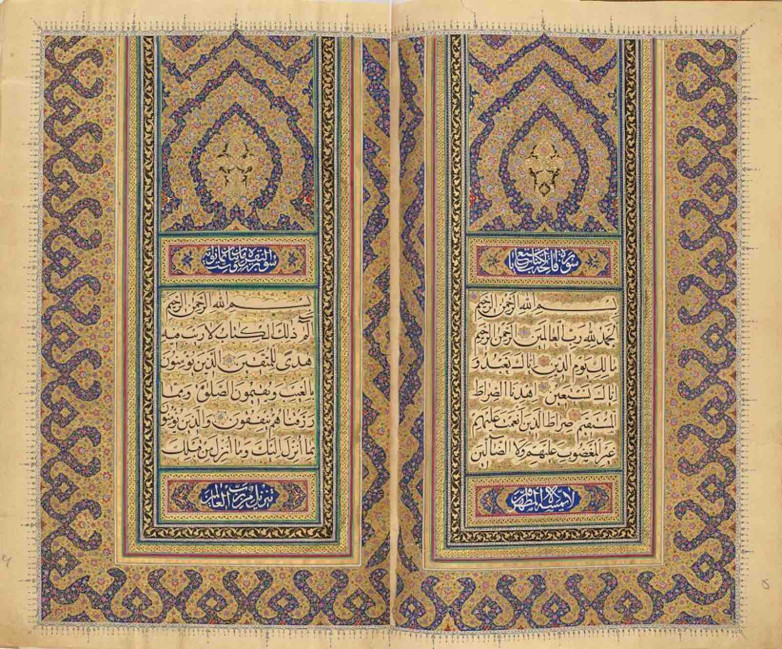 سورة فاتحة الكتاب سبع
بسم الله الرحمن الرحيم
الحمد لله رب العالمين الرحمن الرحيم
مالك يوم الدين اياك نعبد و
اياك نستعين اهدنا الصراط
المستقيم صراط الذين انعمت عليهم
غير المغضوب عليهم ولا الضالين
لا يمسه الا المطهرون
سورة البقرة
بسم الله الرحمن الرحيم
الم ذلك الكتاب لا ريب فيه
هدى للمتقين الذين يؤمنون
بالغيب ويقيمون الصلوة ومما
رزقناهم ينفقون والذين يؤمنون
بما انزل اليك وما انزل من قبلك
تنزيل من رب العالمين